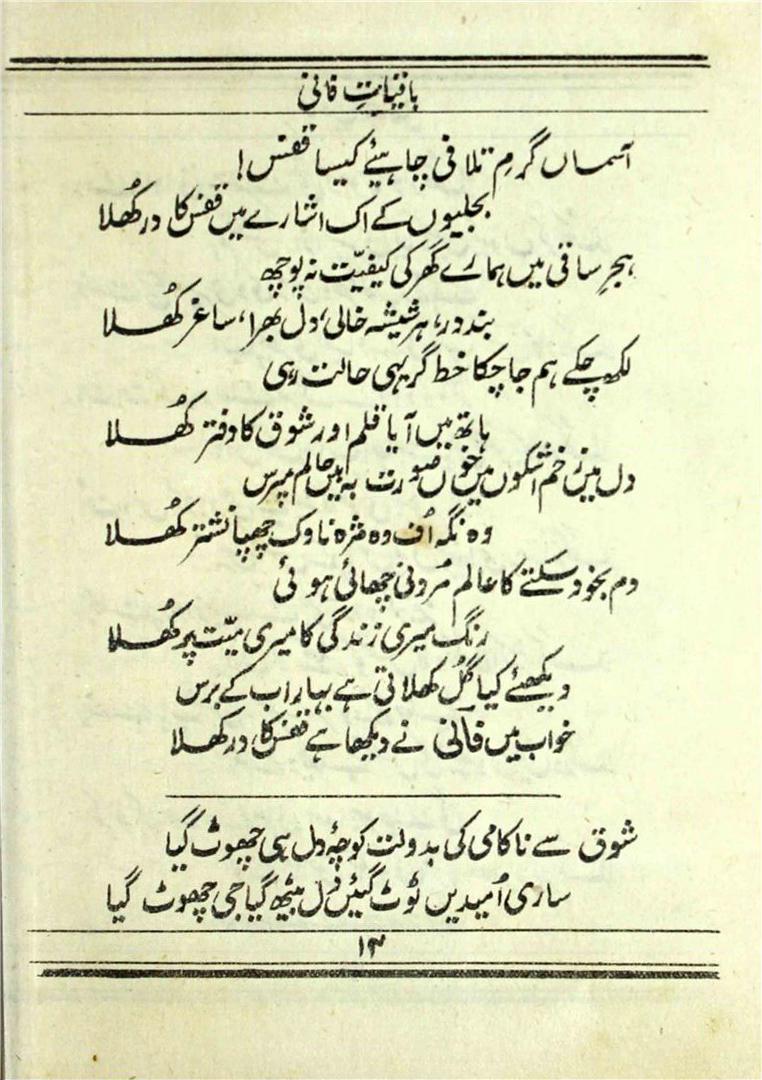 باقیاتِ فانی
آسماں گرمِ تلافی چاہیئے کیسا قفس!
بجلیوں کے اک اشارے میں قفس کا در کھُلا
ہجرِ ساقی میں ہمارے گھر کی کیفیّت نہ پوچھ
بند در، ہر شیشہ خالی، دل بھرا، ساغر کھُلا
لکھ چکے ہم جا چکا خط گر یہی حالت رہی
ہاتھ میں آیا قلم اور شوق کا دفتر کھُلا
دل میں زخم اشکوں میں خوں صورت بہ بیں حالم مپرس
وہ نگہ اُف وہ مژہ ناوک چھپا نشتر کھُلا
دم بخود سکتے کا عالم مُردنی چھائی ہوئی
رنگ میری زندگی کا میری میّت پر کھُلا
دیکھئے کیا گُل کھلاتی ہے بہار اب کے برس
خواب میں فانی نے دیکھا ہے قفس کا در کھلا
شوق سے ناکامی کی بدولت کوچۂ دل ہی چھوٹ گیا
ساری اُمیدیں ٹوٹ گئیں دل بیٹھ گیا جی چھوٹ گیا
۱۳